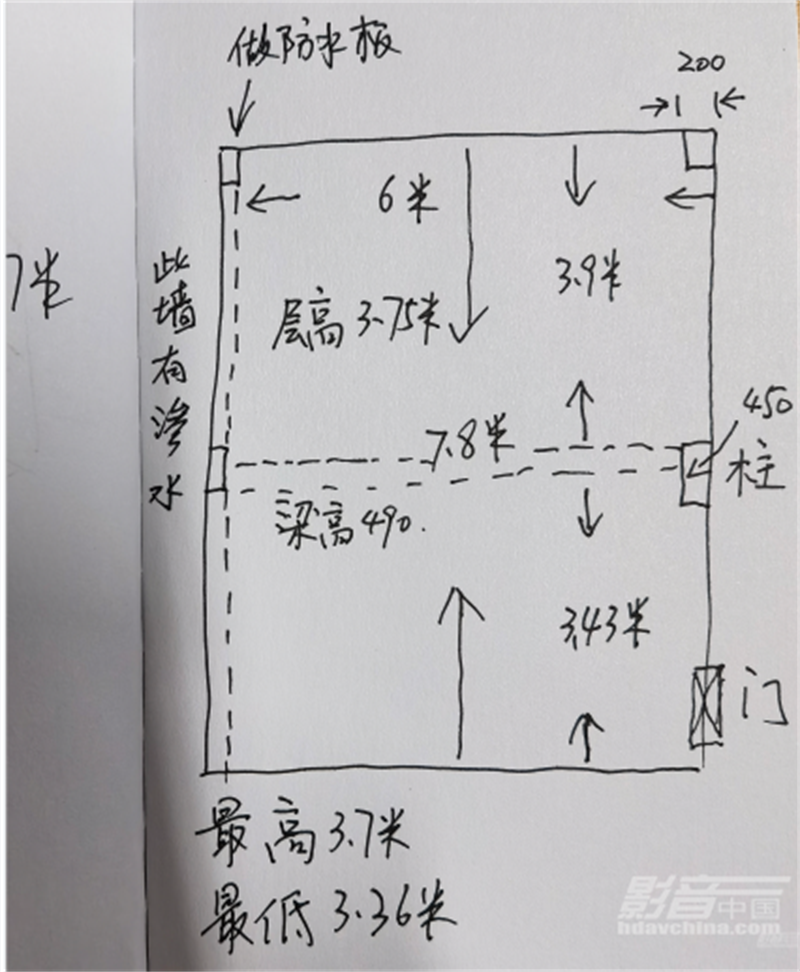 做防水板
200
7米
6米
此墙有渗水
3.9米
层高3.75米
450
柱
7.8米
梁高490.
3.43米
门
最高3.7米
最低3.36米
影音中国
hdavchina.com